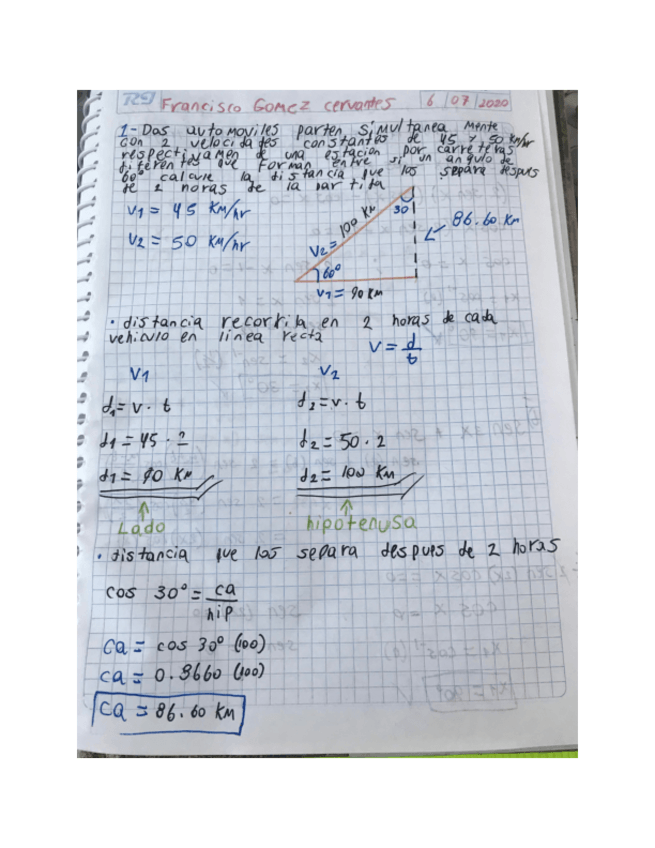 Francisco Gomez cervantes 6 07 2020
1-Dos automoviles parten simultanea mente
con 2 velocidades constantes de 45 y 50 Km/hr
respectivamen de una estacion por carreteras
diferentes que forman entre si un angulo de
60° calcule la distancia que los separa despues
de 2 horas de la partida
V1 = 45 KM/hr
V2 = 50 KM/hr
V2 = 100 KM
30
86.60 KM
60°
V1 = 90 KM
• distancia recorrila en 2 horas de cada
vehiculo en linea recta
V = d/t
V1
V2
d1 = v · t
d2 = v · t
d1 = 45 · 2
d2 = 50 · 2
d1 = 90 KM
d2 = 100 KM
Lado
hipotenusa
• distancia que los separa despues de 2 horas
cos 30° = ca/hip
ca = cos 30° (100)
ca = 0.8660 (100)
ca = 86.60 KM